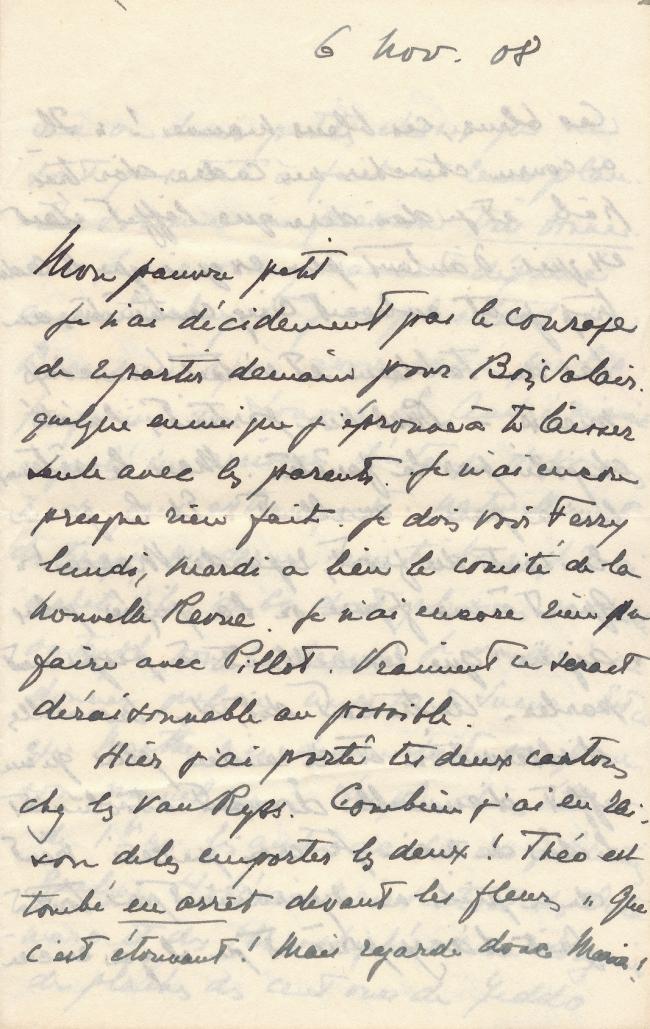 6 nov. 08
Mon pauvre petit
Je n'ai décidément pas le courage
de repartir demain pour Bois Valair.
quelque ennui que j'éprouve à te laisser
seule avec les parents. Je n'ai encore
presque rien fait. Je dois voir Ferry
lundi, mardi a lieu le comité de la
nouvelle Revue. Je n'ai encore rien pu
faire avec Pillot. Vraiment ce serait
déraisonnable au possible.
Hier j'ai porté tes deux cartons
chez les Van Ryss. Combien j'ai eu rai-
son de les emporter les deux ! Théo est
tombé en arrêt devant les fleurs, " Que
c'est étonnant ! Mais regarde donc Maria !